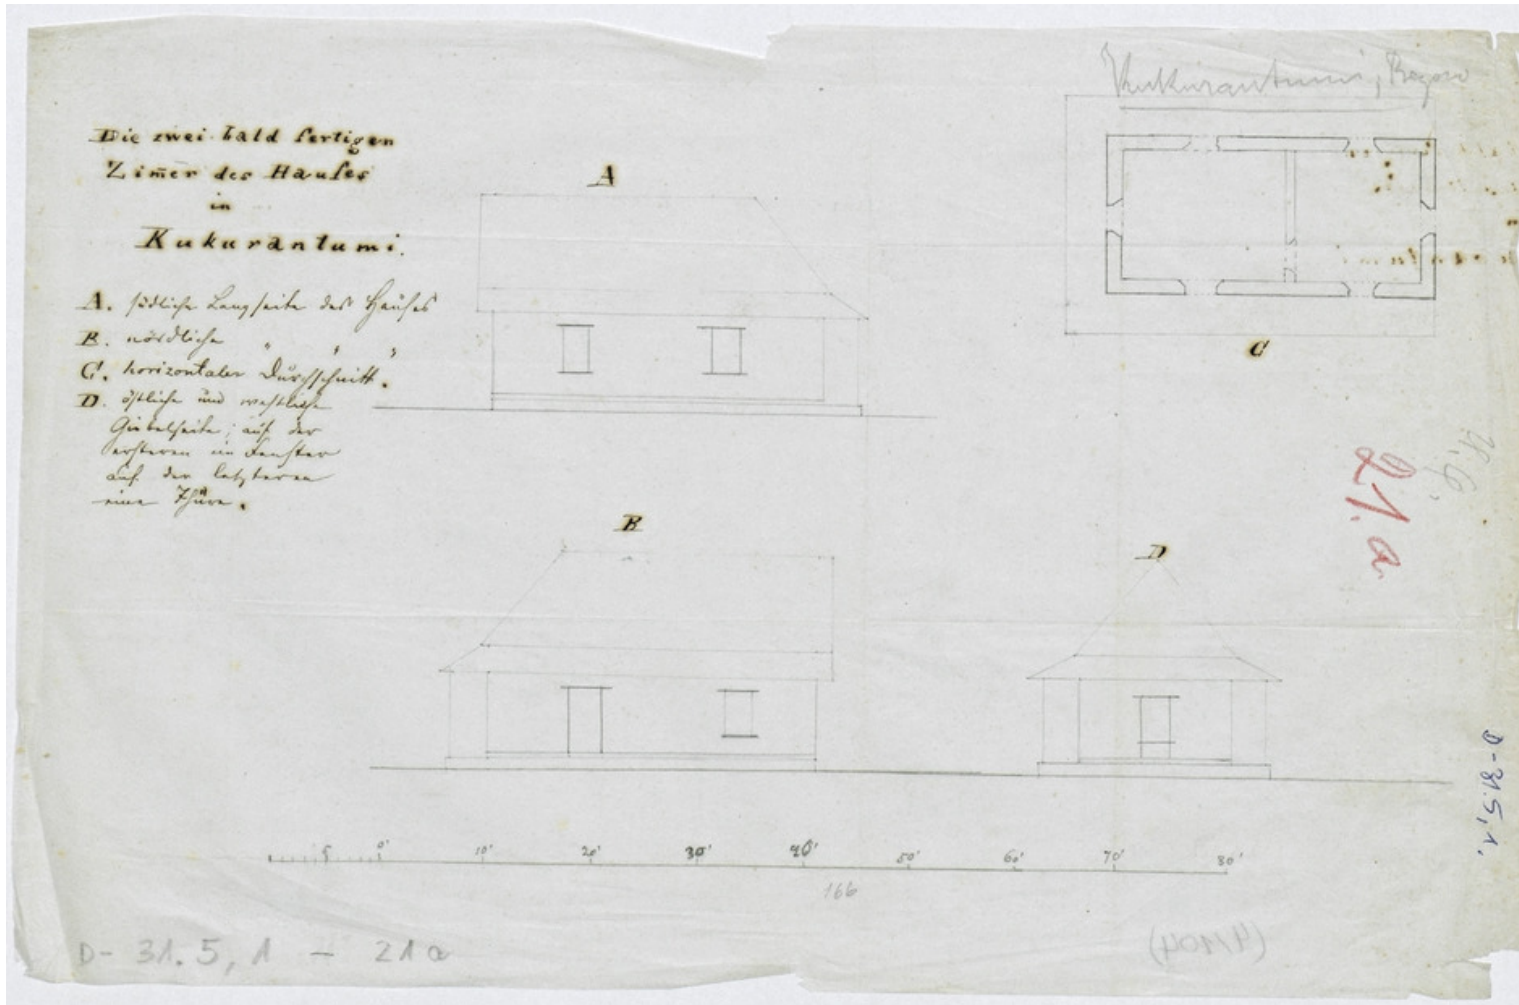 Die zwei bald fertigen
Zim̄er des Hauſes
in
Kukurantumi.
A. südliche Langseite des Hauses
B. nördliche " " "
C. horizontaler Durchschnitt.
D. östliche und westliche
Giebelseite; auf der
ersteren ein Fenster
auf der letzteren
eine Thüre.
A
Kukurantumi,
C
21.a
B
D
D-31.5,1.
5 0' 10' 20' 30' 40' 50' 60' 70' 80'
166
D- 31.5,1 - 21a
(4/104)